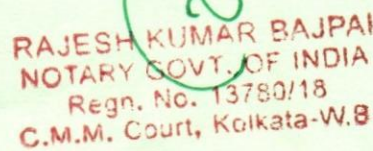 RAJESH KUMAR BAJPAI
NOTARY GOVT. OF INDIA
Regn. No. 13780/18
C.M.M. Court, Kolkata-W.B